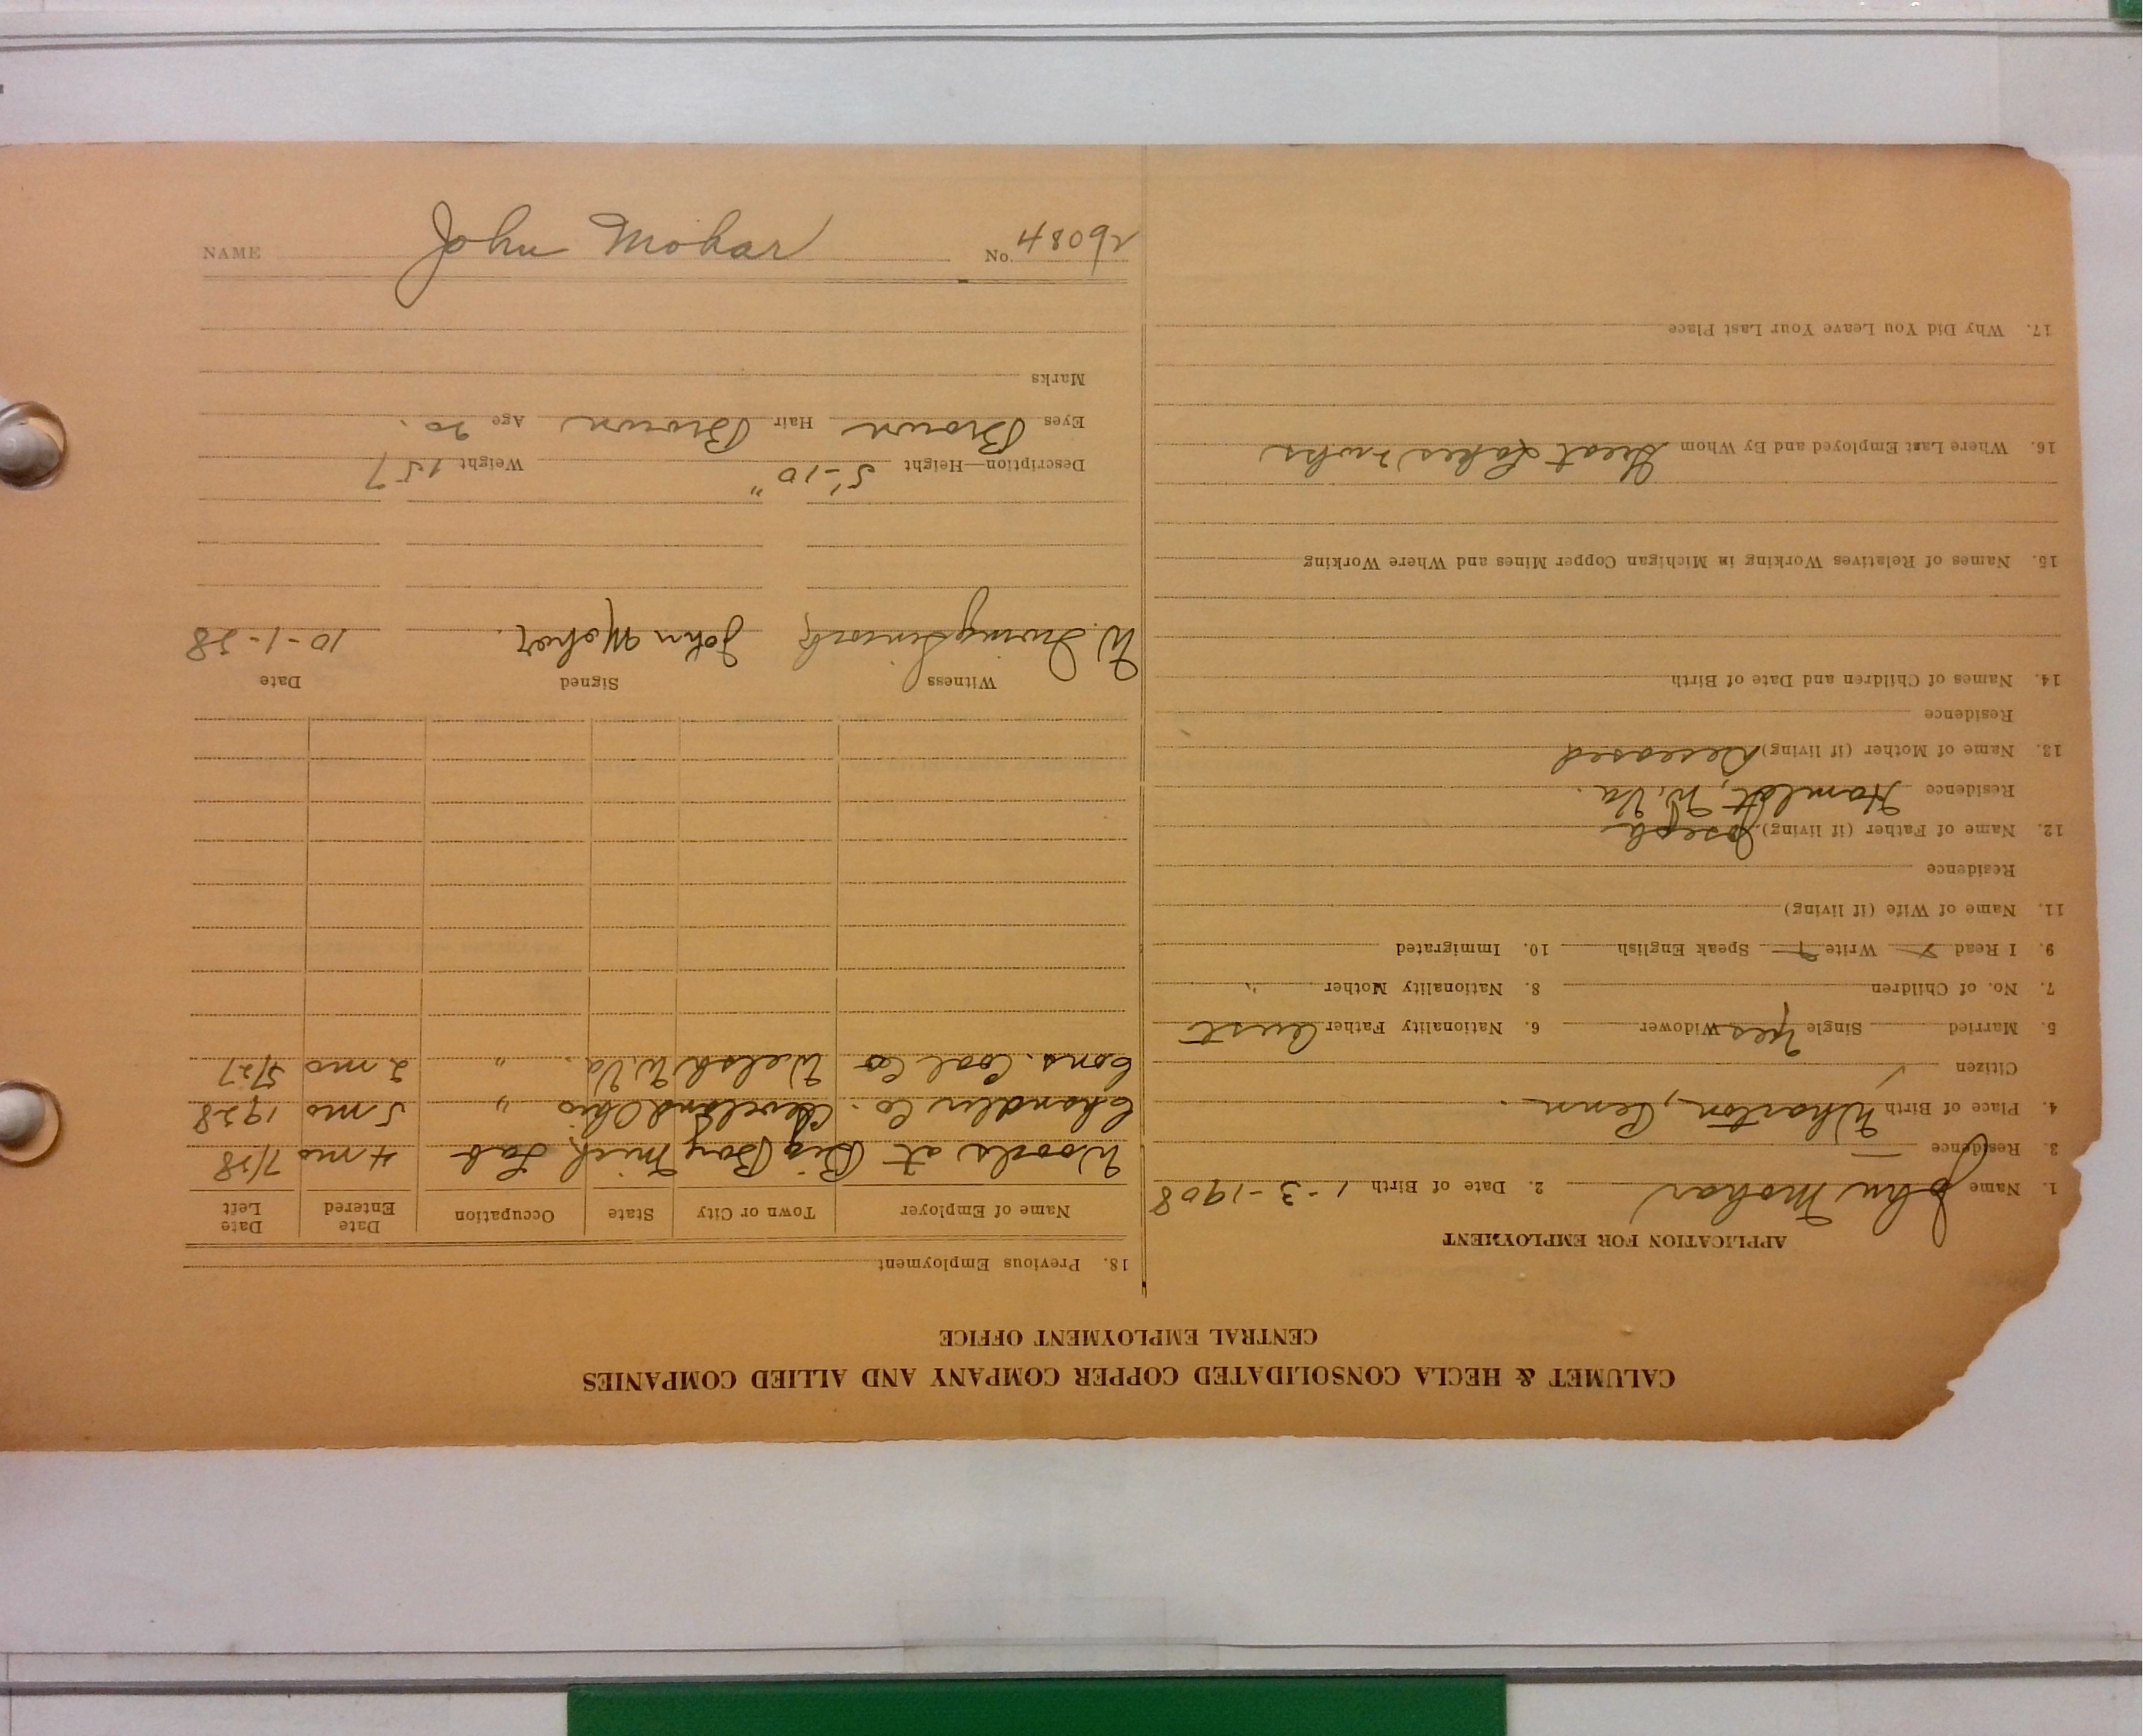 CALUMET & HECLA CONSOLIDATED COPPER COMPANY AND ALLIED COMPANIES
CENTRAL EMPLOYMENT OFFICE
APPLICATION FOR EMPLOYMENT
1. Name John Mohar 2. Date of Birth 1-3-1908
3. Residence
4. Place of Birth Wharton, Penn.
Citizen ✓
5. Married Single Yes Widower 6. Nationality Father Aust
7. No. of Children 8. Nationality Mother "
9. I Read Write Speak English 10. Immigrated
11. Name of Wife (if living)
Residence
12. Name of Father (if living) Joseph
Residence W. Va.
13. Name of Mother (if living) Deceased
Residence
14. Names of Children and Date of Birth
15. Names of Relatives Working in Michigan Copper Mines and Where Working
16. Where Last Employed and By Whom Great Lakes 2 wks
17. Why Did You Leave Your Last Place
18. Previous Employment
Name of Employer Town or City State Occupation Date Entered Date Left
Woods at Big Bay Mich Lab 4 mo 7/28
Chandler Co. Cleveland Ohio " 5 mo 1928
Cons. Coal Co Welsh W. Va. " 2 mo 5/27
Witness Signed Date
W. Irving John Mohar. 10-1-28
Description—Height 5'-10" Weight 157
Eyes Brown Hair Brown Age 20.
Marks
NAME John Mohar No. 48092